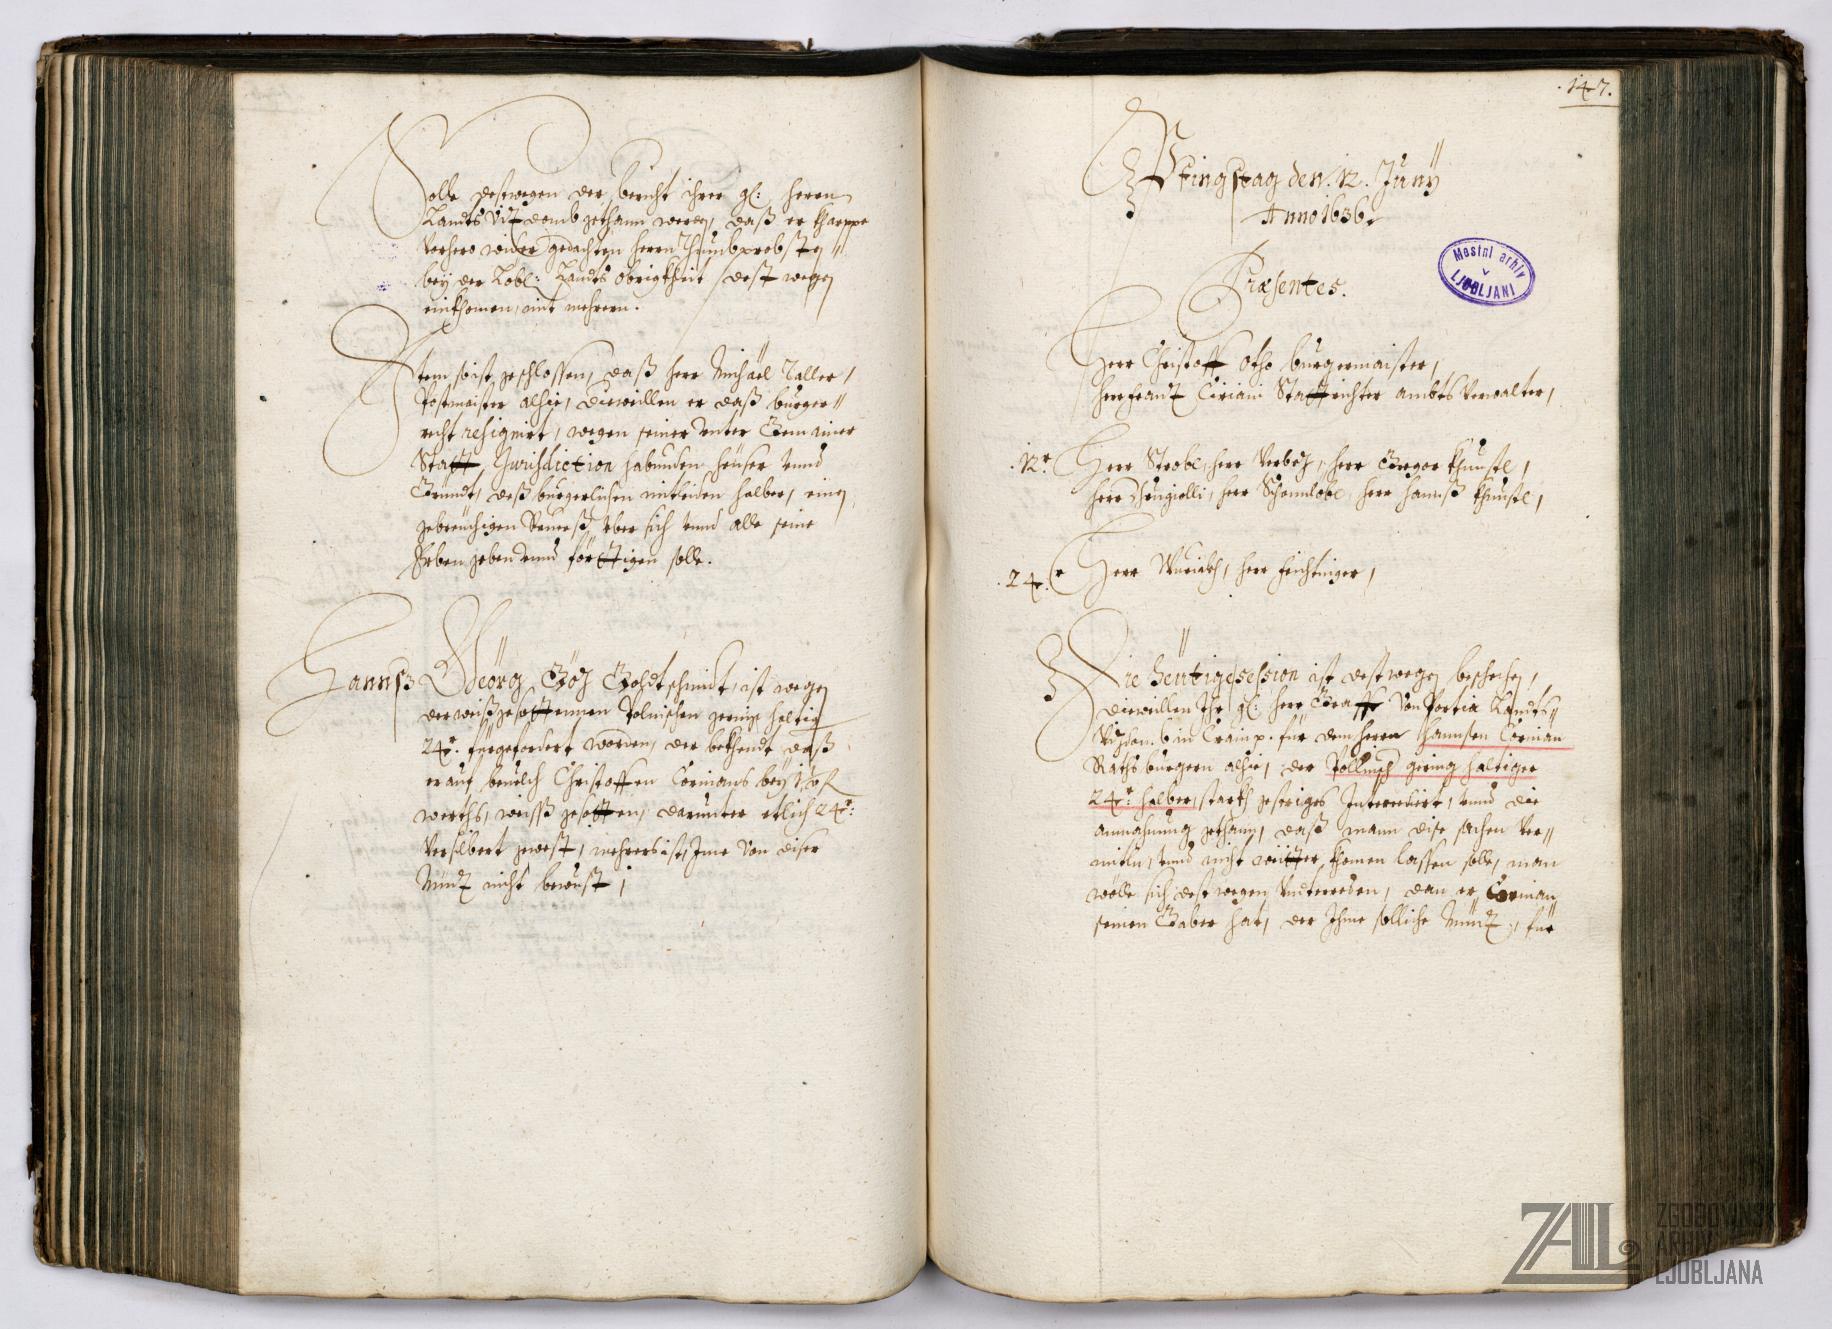 Solle destwegen der bericht ihrer gl: herrn
Landts Vitzdomb gethann werden, daß er
vorhero wider gedachten herrn Thumbprobsten
bey der Lobl: Landts Obrigkheit dest wegen
einkhomen, mit mehrern.
Item, so ist geschlossen, daß herr Michael Taller,
Postmaister alhie, dieweillen er daß burger
recht resignirt, wegen seiner unter Gemainer
Statt Jurisdiction habunden heüser unnd
Gründt, deß burgerlichen mitleiden halber, einen
gebreüchigen Reuerß, über sich unnd alle seine
Erben, geben unnd förttigen solle.
Hannß Geörg Göz Goldtschmidt, ist wegen
der weißgesottennen Polnischen gering haltig
24r. fürgefordert worden, der bekhendt daß
er auf beuelch Christoffen Cormans bey
werths, weiß gesotten, darunter etlich 24r:
versilbert gewest, mehrers ist Ime von diser
Münz nicht bewust,
.147.
Pfingstag den .12. Juny
Anno 1636.
Præsentes.
Mestni arhiv
v
LJUBLJANI
Herr Christoff Otho burgermaister,
herr Franz Ciriani Stattrichter ambts Verwalter,
.12r. Herr Strobl, herr Verbez, herr Gregor Khunstl,
herr herr herr Hannß Khunstl,
.24.r Herr herr Feichtinger,
Die heütige session ist destwegen beschechen,
dieweillen Ihr gl: herr Graff Von Portia Landts
Vizdom. b in Crain p. für den herrn Hannsen Corman
Raths burgern alhie, der Pollnisch gering haltigen
24r: halber, starkh Intercedirt, unnd die
anmahnung gethann, daß mann dise sachen ver
mitln, unnd nicht weitter khomen lassen solle, man
wölle sich destwegen undterreden, dan er Corman
seinen Gaber hat, der Ihme solliche Münz, für
ZAL
ZGODOVINSKI
ARHIV
LJUBLJANA